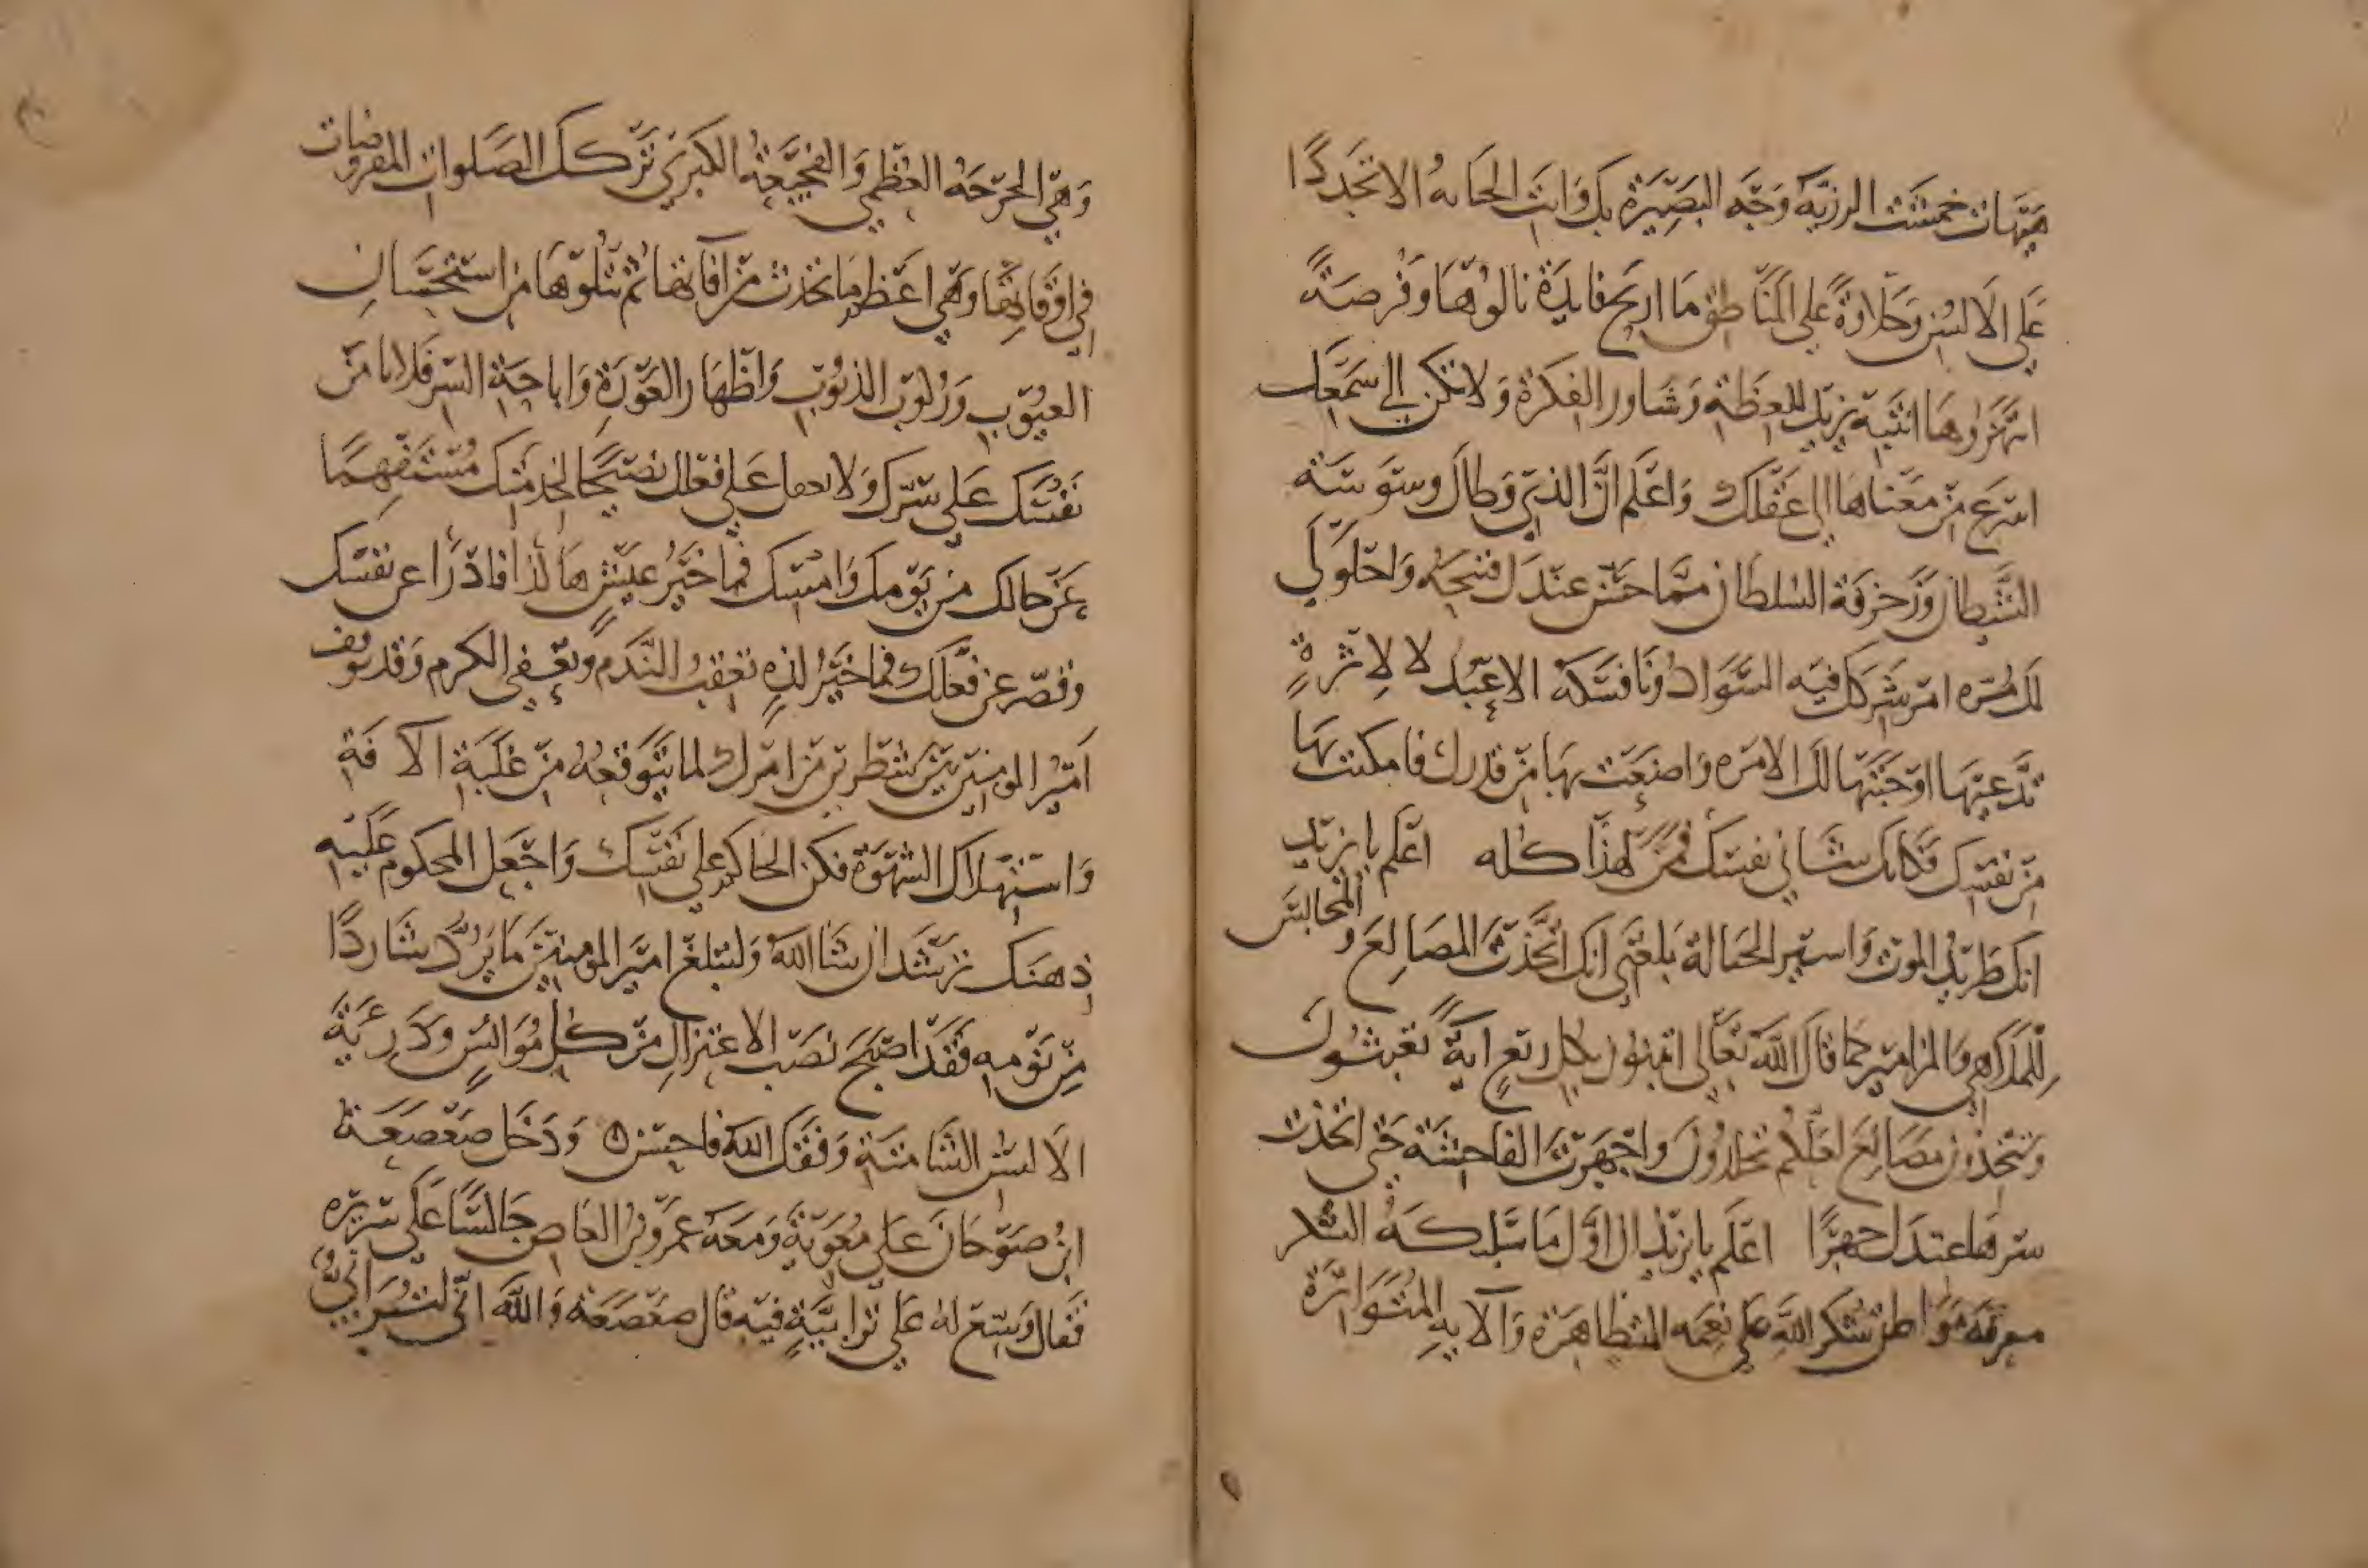 هيهات خمشت الرزية وجه البصيرة بك وابت الجناية الا تجددا
على الالسن وحلاوة على المناطق ما اربح فايدة نالوها وفرصة
انتهزوها انتبه يزيد للعظة وشاور الفكرة ولا تكن الى سمعك
اسرع من معناها الى عقلك واعلم ان الذي وطال وسوسة
الشيطان وزخرفة السلطان مما حسن عندك قبحه واحلولى
لك مره امر شركك فيه السواد ونافسكه الاعبد لا لاثرة
تدعيها اوجبتها لك الامره واضعت بها من قدرك فامكنت بها
من نفسك فكانك شاني نفسك فمن لهذا كله اعلم يا يزيد
انك طريد الموت واسير الحياة بلغني انك اتخذت المصانع والمجالس
للملاهي والمزامير كما قال الله تعالى اتبنون بكل ريع اية تعبثون
وتتخذون مصانع لعلكم تخلدون واجهرت الفاحشة حتى اتخذت
سريرتها عندك جهرا اعلم يا يزيد ان اول ما سلبكه السكر
معرفة مواطن شكر الله على نعمه المتظاهرة والآيه المتواترة
وهي الجرحة العظمى والفجيعة الكبرى ترك الصلوات المفروضات
في اوقاتها وهي اعظم ما تحدث من آفاتها ثم تتلوها من استحسان
العيوب وركوب الذنوب واظهار العورة واباحة السر فلا تامن
نفسك على سرك ولا تعمل على فعلك نصيحا لخدمتك مستفهما
عن حالك من يومك وامسك فما خير عيش هاكذا فاذرا عن نفسك
وقصر عن فعلك فما خير لذة تعقب الندم وتعفي الكرم وقد توقف
امير المومنين بين شطرين من امرك لما يتوقعه من غلبة الآفة
واستهلاك الشهوة فكن الحاكم على نفسك واجعل المحكوم عليه
ذهنك ترشد ان شا الله ولتبلغ امير المومنين ما يرد شاردا
من نومه فقد اصبح نصب الاعتزال من كل موانس ودرئية
الالسن الشامتة وفقك الله فاحسن ٥ ودخل صعصعة
ابن صوحان على معوية ومعه عمرو بن العاص جالسا على سريره
فقال وسع له على ترابية فيه قال صعصعة والله اني لترابي